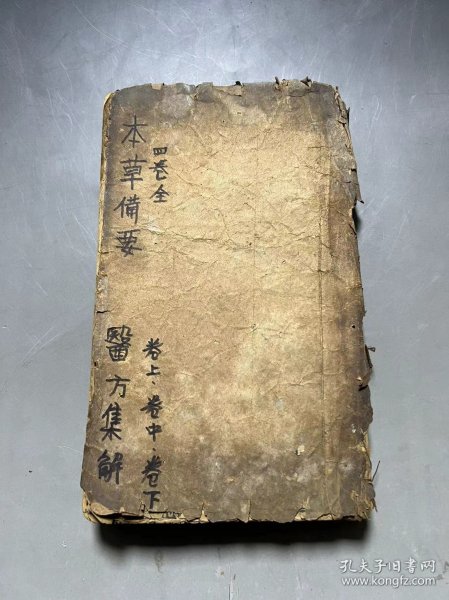 本草備要
四卷全
醫方集解
卷上、卷中、卷下
孔夫子旧书网
www.kongfz.com